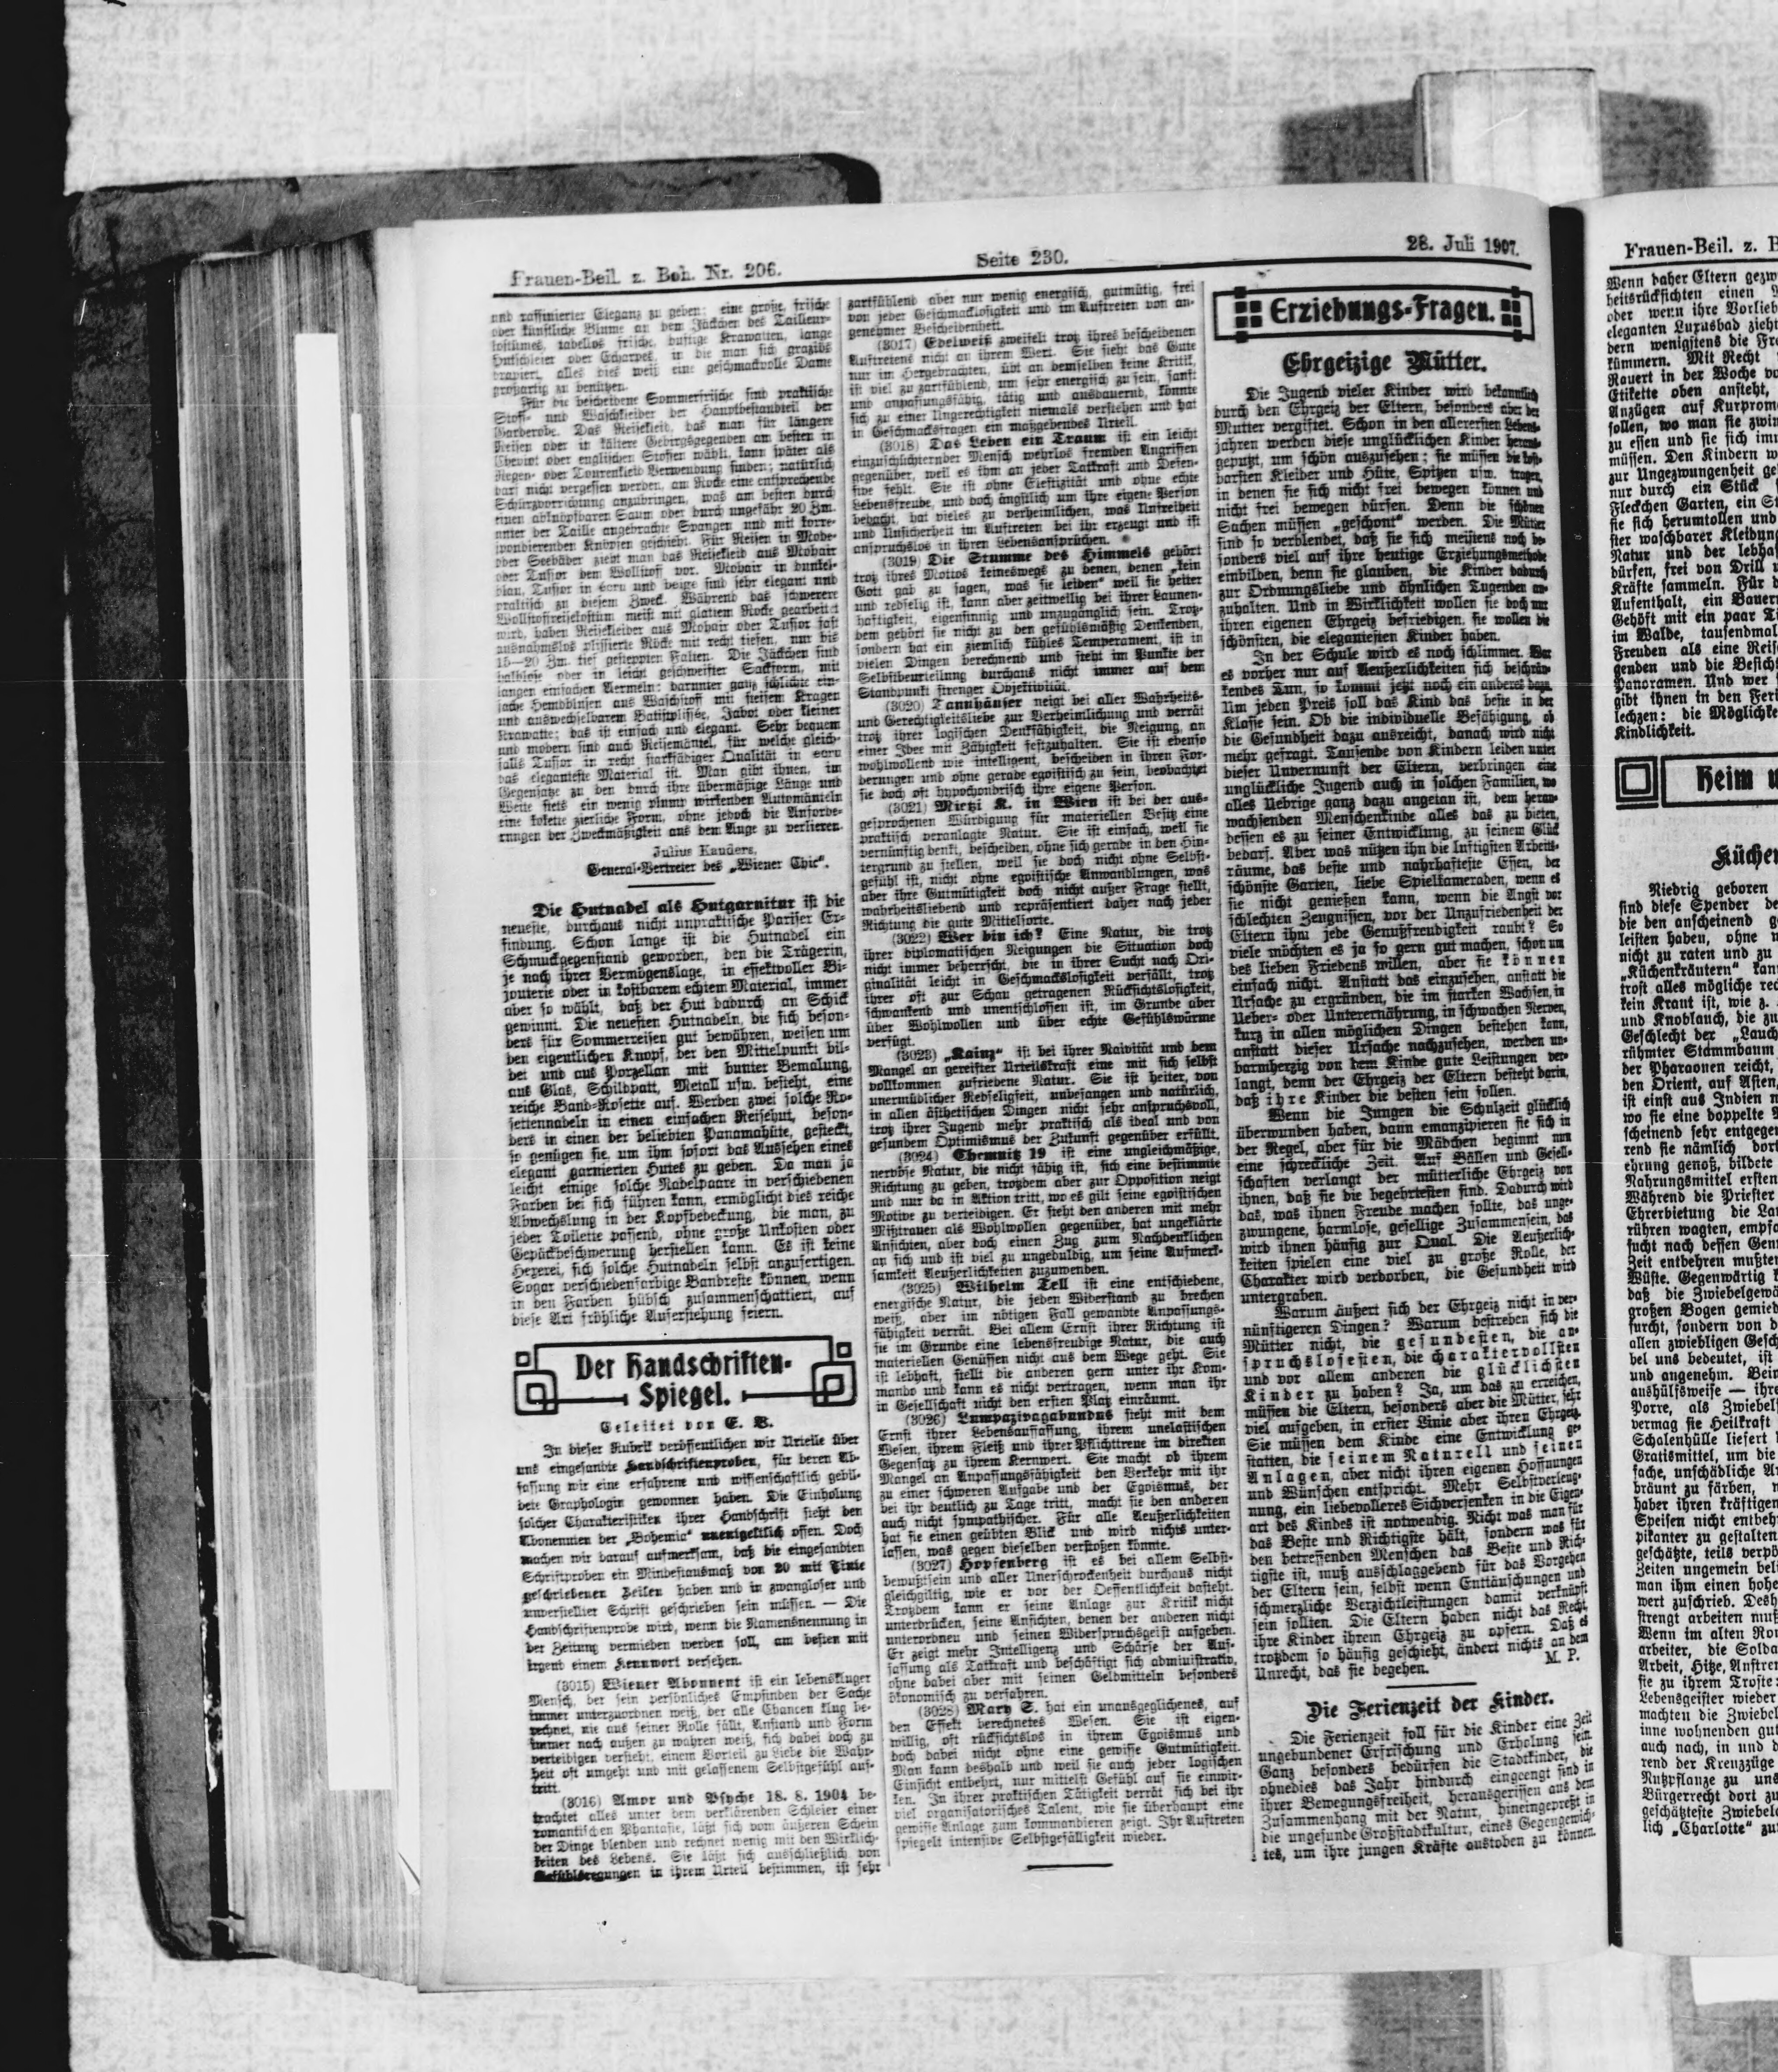 Frauen-Beil. z. Boh. Nr. 206.
Seite 230.
28. Juli 1907.
und raffinierter Eleganz zu geben; eine große, frische
oder künstliche Blume an dem Jäckchen des Tailleur-
kostümes, tadellos frische, duftige Krawatten, lange
Hutschleier oder Echarpes, in die man sich graziös
drapiert, alles dies weiß eine geschmackvolle Dame
großartig zu benützen.
Für die bescheidene Sommerfrische sind praktische
Stoff- und Waschkleider der Hauptbestandteil der
Garderobe. Das Reisekleid, das man für längere
Reisen oder in kältere Gebirgsgegenden am besten in
Cheviot oder englischen Stoffen wählt, kann später als
Regen- oder Tourenkleid Verwendung finden; natürlich
darf nicht vergessen werden, am Rocke eine entsprechende
Schürzvorrichtung anzubringen, was am besten durch
einen abknöpfbaren Saum oder durch ungefähr 20 Zm.
unter der Taille angebrachte Spangen und mit korre-
spondierenden Knöpfen geschieht. Für Reisen in Mode-
oder Seebäder zieht man das Reisekleid aus Mohair
oder Tussor dem Wollstoff vor. Mohair in dunkel-
blau, Tussor in ecru und beige sind sehr elegant und
praktisch zu diesem Zweck. Während das schwerere
Wollstoffreisekostüm meist mit glattem Rocke gearbeitet
wird, haben Reisekleider aus Mohair oder Tussor fast
ausnahmslos plissierte Röcke mit recht tiefen, nur bis
15—20 Zm. tief gesteppten Falten. Die Jäckchen sind
halblose oder in leicht geschweifter Sackform, mit
langen einfachen Aermeln; darunter ganz schlichte ein-
fache Hemdblusen aus Waschstoff mit steifem Kragen
und auswechselbarem Batistplissée, Jabot oder kleiner
Krawatte; das ist einfach und elegant. Sehr bequem
und modern sind auch Reisemäntel, für welche gleich-
falls Tussor in recht starkfädiger Qualität in ecru
das eleganteste Material ist. Man gibt ihnen, im
Gegensatze zu den durch ihre übermäßige Länge und
Weite stets ein wenig plump wirkenden Automänteln
eine kokette zierliche Form, ohne jedoch die Anforde-
rungen der Zweckmäßigkeit aus dem Auge zu verlieren.
Julius Kanders,
General-Vertreter des „Wiener Chic“.
Die Hutnadel als Hutgarnitur ist die
neueste, durchaus nicht unpraktische Pariser Er-
findung. Schon lange ist die Hutnadel ein
Schmuckgegenstand geworden, den die Trägerin,
je nach ihrer Vermögenslage, in effektvoller Bi-
jouterie oder in kostbarem echtem Material, immer
aber so wählt, daß der Hut dadurch an Schick
gewinnt. Die neuesten Hutnadeln, die sich beson-
ders für Sommerreisen gut bewähren, weisen um
den eigentlichen Knopf, der den Mittelpunkt bil-
det und aus Porzellan mit bunter Bemalung,
aus Glas, Schildpatt, Metall usw. besteht, eine
reiche Band-Rosette auf. Werden zwei solche Ro-
settennadeln in einen einfachen Reisehut, beson-
ders in einen der beliebten Panamahüte, gesteckt,
so genügen sie, um ihm sofort das Aussehen eines
elegant garnierten Hutes zu geben. Da man ja
leicht einige solche Nadelpaare in verschiedenen
Farben bei sich führen kann, ermöglicht dies reiche
Abwechslung in der Kopfbedeckung, die man, zu
jeder Toilette passend, ohne große Unkosten oder
Gepäckbeschwerung herstellen kann. Es ist keine
Hexerei, sich solche Hutnadeln selbst anzufertigen.
Sogar verschiedenfarbige Bandreste können, wenn
in den Farben hübsch zusammenschattiert, auf
diese Art fröhliche Auferstehung feiern.
Der Handschriften-
Spiegel.
Geleitet von E. B.
In dieser Rubrik veröffentlichen wir Urteile über
uns eingesandte Handschriftenproben, für deren Ab-
fassung wir eine erfahrene und wissenschaftlich gebil-
dete Graphologin gewonnen haben. Die Einholung
solcher Charakteristiken ihrer Handschrift steht den
Abonnenten der „Bohemia“ unentgeltlich offen. Doch
machen wir darauf aufmerksam, daß die eingesandten
Schriftproben ein Mindestausmaß von 20 mit Tinte
geschriebenen Zeilen haben und in zwangloser und
unverstellter Schrift geschrieben sein müssen. — Die
Handschriftenprobe wird, wenn die Namensnennung in
der Zeitung vermieden werden soll, am besten mit
irgend einem Kennwort versehen.
(3015) Wiener Abonnent ist ein lebenskluger
Mensch, der sein persönliches Empfinden der Sache
immer unterzuordnen weiß, der alle Chancen klug be-
rechnet, nie aus seiner Rolle fällt, Anstand und Form
immer nach außen zu wahren weiß, sich dabei doch zu
verteidigen versteht, einem Vorteil zu Liebe die Wahr-
heit oft umgeht und mit gelassenem Selbstgefühl auf-
tritt.
(3016) Amor und Psyche 18. 8. 1904 be-
trachtet alles unter dem verklärenden Schleier einer
romantischen Phantasie, läßt sich vom äußeren Schein
der Dinge blenden und rechnet wenig mit den Wirklich-
keiten des Lebens. Sie läßt sich ausschließlich von
Gefühlsregungen in ihrem Urteil bestimmen, ist sehr
zartfühlend aber nur wenig energisch, gutmütig, frei
von jeder Geschmacklosigkeit und im Auftreten von an-
genehmer Bescheidenheit.
(3017) Edelweiß zweifelt trotz ihres bescheidenen
Auftretens nicht an ihrem Wert. Sie sieht das Gute
nur im Hergebrachten, übt an demselben keine Kritik,
ist viel zu zartfühlend, um sehr energisch zu sein, sanft
und anpassungsfähig, tätig und ausdauernd, könnte
sich zu einer Ungerechtigkeit niemals verstehen und hat
in Geschmacksfragen ein maßgebendes Urteil.
(3018) Das Leben ein Traum ist ein leicht
einzuschüchternder Mensch wehrlos fremden Angriffen
gegenüber, weil es ihm an jeder Tatkraft und Defen-
sive fehlt. Sie ist ohne Elastizität und ohne echte
Lebensfreude, und doch ängstlich um ihre eigene Person
bedacht, hat vieles zu verheimlichen, was Unfreiheit
und Unsicherheit im Auftreten bei ihr erzeugt und ist
anspruchslos in ihren Lebensansprüchen.
(3019) Die Stumme des Himmels gehört
trotz ihres Mottos keineswegs zu denen, denen „kein
Gott gab zu sagen, was sie leiden“ weil sie heiter
und redselig ist, kann aber zeitweilig bei ihrer Launen-
haftigkeit, eigensinnig und unzugänglich sein. Trotz-
dem gehört sie nicht zu den gefühlsmäßig Denkenden,
sondern hat ein ziemlich kühles Temperament, ist in
vielen Dingen berechnend und steht im Punkte der
Selbstbeurteilung durchaus nicht immer auf dem
Standpunkt strenger Objektivität.
(3020) Tannhäuser neigt bei aller Wahrheits-
und Gerechtigkeitsliebe zur Verheimlichung und verrät
trotz ihrer logischen Denkfähigkeit, die Neigung, an
einer Idee mit Zähigkeit festzuhalten. Sie ist ebenso
wohlwollend wie intelligent, bescheiden in ihren For-
derungen und ohne gerade egoistisch zu sein, beobachtet
sie doch oft hypochondrisch ihre eigene Person.
(3021) Mietzi K. in Wien ist bei der aus-
gesprochenen Würdigung für materiellen Besitz eine
praktisch veranlagte Natur. Sie ist einfach, weil sie
vernünftig denkt, bescheiden, ohne sich gerade in den Hin-
tergrund zu stellen, weil sie doch nicht ohne Selbst-
gefühl ist, nicht ohne egoistische Anwandlungen, was
aber ihre Gutmütigkeit doch nicht außer Frage stellt,
wahrheitsliebend und repräsentiert daher nach jeder
Richtung die gute Mittelsorte.
(3022) Wer bin ich? Eine Natur, die trotz
ihrer diplomatischen Neigungen die Situation doch
nicht immer beherrscht, die in ihrer Sucht nach Ori-
ginalität leicht in Geschmacklosigkeit verfällt, trotz
ihrer oft zur Schau getragenen Rücksichtslosigkeit,
schwankend und unentschlossen ist, im Grunde aber
über Wohlwollen und über echte Gefühlswärme
verfügt.
(3023) „Kainz“ ist bei ihrer Naivität und dem
Mangel an gereifter Urteilskraft eine mit sich selbst
vollkommen zufriedene Natur. Sie ist heiter, von
unermüdlicher Redseligkeit, unbefangen und natürlich,
in allen ästhetischen Dingen nicht sehr anspruchsvoll,
trotz ihrer Jugend mehr praktisch als ideal und von
gesundem Optimismus der Zukunft gegenüber erfüllt.
(3024) Chemnitz 19 ist eine ungleichmäßige,
nervöse Natur, die nicht fähig ist, sich eine bestimmte
Richtung zu geben, trotzdem aber zur Opposition neigt
und nur da in Aktion tritt, wo es gilt seine egoistischen
Motive zu verteidigen. Er steht den anderen mit mehr
Mißtrauen als Wohlwollen gegenüber, hat ungeklärte
Ansichten, aber doch einen Zug zum Nachdenklichen
an sich und ist viel zu ungeduldig, um seine Aufmerk-
samkeit Aeußerlichkeiten zuzuwenden.
(3025) Wilhelm Tell ist eine entschiedene,
energische Natur, die jeden Widerstand zu brechen
weiß, aber im nötigen Fall gewandte Anpassungs-
fähigkeit verrät. Bei allem Ernst ihrer Richtung ist
sie im Grunde eine lebensfreudige Natur, die auch
materiellen Genüssen nicht aus dem Wege geht. Sie
ist lebhaft, stellt die anderen gern unter ihr Kom-
mando und kann es nicht vertragen, wenn man ihr
in Gesellschaft nicht den ersten Platz einräumt.
(3026) Lumpazivagabundus steht mit dem
Ernst ihrer Lebensauffassung, ihrem unelastischen
Wesen, ihrem Fleiß und ihrer Pflichttreue im direkten
Gegensatz zu ihrem Kernwert. Sie macht ob ihrem
Mangel an Anpassungsfähigkeit den Verkehr mit ihr
zu einer schweren Aufgabe und der Egoismus, der
bei ihr deutlich zu Tage tritt, macht sie den anderen
auch nicht sympathischer. Für alle Aeußerlichkeiten
hat sie einen geübten Blick und wird nichts unter-
lassen, was gegen dieselben verstoßen könnte.
(3027) Hopfenberg ist es bei allem Selbst-
bewußtsein und aller Unerschrockenheit durchaus nicht
gleichgiltig, wie er vor der Oeffentlichkeit dasteht.
Trotzdem kann er seine Anlage zur Kritik nicht
unterdrücken, seine Ansichten, denen der anderen nicht
unterordnen und seinen Widerspruchsgeist aufgeben.
Er zeigt mehr Intelligenz und Schärfe der Auf-
fassung als Tatkraft und beschäftigt sich administrativ,
ohne dabei aber mit seinen Geldmitteln besonders
ökonomisch zu verfahren.
(3028) Mary S. hat ein unausgeglichenes, auf
den Effekt berechnetes Wesen. Sie ist eigen-
willig, oft rücksichtslos in ihrem Egoismus und
doch dabei nicht ohne eine gewisse Gutmütigkeit.
Man kann deshalb und weil sie auch jeder logischen
Einsicht entbehrt, nur mittelst Gefühl auf sie einwir-
ken. In ihrer praktischen Tätigkeit verrät sich bei ihr
viel organisatorisches Talent, wie sie überhaupt eine
gewisse Anlage zum kommandieren zeigt. Ihr Auftreten
spiegelt intensive Selbstgefälligkeit wieder.
Erziehungs-Fragen.
Ehrgeizige Mütter.
Die Jugend vieler Kinder wird bekanntlich
durch den Ehrgeiz der Eltern, besonders aber der
Mutter vergiftet. Schon in den allerersten Lebens-
jahren werden diese unglücklichen Kinder heraus-
geputzt, um schön auszusehen; sie müssen die kost-
barsten Kleider und Hüte, Spitzen usw. tragen,
in denen sie sich nicht frei bewegen können und
nicht frei bewegen dürfen. Denn die schönen
Sachen müssen „geschont“ werden. Die Mütter
sind so verblendet, daß sie sich meistens noch be-
sonders viel auf ihre heutige Erziehungsmethode
einbilden, denn sie glauben, die Kinder dadurch
zur Ordnungsliebe und ähnlichen Tugenden an-
zuhalten. Und in Wirklichkeit wollen sie doch nur
ihren eigenen Ehrgeiz befriedigen, sie wollen die
schönsten, die elegantesten Kinder haben.
In der Schule wird es noch schlimmer. War
es vorher nur auf Aeußerlichkeiten sich beschrän-
kendes Tun, so kommt jetzt noch ein anderes dazu.
Um jeden Preis soll das Kind das beste in der
Klasse sein. Ob die individuelle Befähigung, ob
die Gesundheit dazu ausreicht, danach wird nicht
mehr gefragt. Tausende von Kindern leiden unter
dieser Unvernunft der Eltern, verbringen eine
unglückliche Jugend auch in solchen Familien, wo
alles Uebrige ganz dazu angetan ist, dem heran-
wachsenden Menschenkinde alles das zu bieten,
dessen es zu seiner Entwicklung, zu seinem Glück
bedarf. Aber was nützen ihn die luftigsten Arbeits-
räume, das beste und nahrhafteste Essen, der
schönste Garten, liebe Spielkameraden, wenn es
sie nicht genießen kann, wenn die Angst vor
schlechten Zeugnissen, vor der Unzufriedenheit der
Eltern ihm jede Genußfreudigkeit raubt? So
viele möchten es ja so gern gut machen, schon um
des lieben Friedens willen, aber sie können
einfach nicht. Anstatt das einzusehen, anstatt die
Ursache zu ergründen, die im starken Wachsen, in
Ueber- oder Unterernährung, in schwachen Nerven,
kurz in allen möglichen Dingen bestehen kann,
anstatt dieser Ursache nachzusehen, werden un-
barmherzig von dem Kinde gute Leistungen ver-
langt, denn der Ehrgeiz der Eltern besteht darin,
daß ihre Kinder die besten sein sollen.
Wenn die Jungen die Schulzeit glücklich
überwunden haben, dann emanzipieren sie sich in
der Regel, aber für die Mädchen beginnt nun
eine schreckliche Zeit. Auf Bällen und Gesell-
schaften verlangt der mütterliche Ehrgeiz von
ihnen, daß sie die begehrtesten sind. Dadurch wird
das, was ihnen Freude machen sollte, das unge-
zwungene, harmlose, gesellige Zusammensein, das
wird ihnen häufig zur Qual. Die Aeußerlich-
keiten spielen eine viel zu große Rolle, der
Charakter wird verdorben, die Gesundheit wird
untergraben.
Warum äußert sich der Ehrgeiz nicht in ver-
nünftigeren Dingen? Warum bestreben sich die
Mütter nicht, die gesundesten, die an-
spruchslosesten, die charaktervollsten
und vor allem anderen die glücklichsten
Kinder zu haben? Ja, um das zu erreichen,
müssen die Eltern, besonders aber die Mütter, sehr
viel aufgeben, in erster Linie aber ihren Ehrgeiz.
Sie müssen dem Kinde eine Entwicklung ge-
statten, die seinem Naturell und seinen
Anlagen, aber nicht ihren eigenen Hoffnungen
und Wünschen entspricht. Mehr Selbstverleug-
nung, ein liebevolleres Sichversenken in die Eigen-
art des Kindes ist notwendig. Nicht was man für
das Beste und Richtigste hält, sondern was für
den betreffenden Menschen das Beste und Rich-
tigste ist, muß ausschlaggebend für das Vorgehen
der Eltern sein, selbst wenn Enttäuschungen und
schmerzliche Verzichtleistungen damit verknüpft
sein sollten. Die Eltern haben nicht das Recht,
ihre Kinder ihrem Ehrgeiz zu opfern. Daß es
trotzdem so häufig geschieht, ändert nichts an dem
Unrecht, das sie begehen.
M. P.
Die Ferienzeit der Kinder.
Die Ferienzeit soll für die Kinder eine Zeit
ungebundener Erfrischung und Erholung sein.
Ganz besonders bedürfen die Stadtkinder, die
ohnedies das Jahr hindurch eingeengt sind in
ihrer Bewegungsfreiheit, herausgerissen aus dem
Zusammenhang mit der Natur, hineingepreßt in
die ungesunde Großstadtkultur, eines Gegengewich-
tes, um ihre jungen Kräfte austoben zu können.
Frauen-Beil. z. B
Wenn daher Eltern gezw
heitsrücksichten einen
oder wenn ihre Vorlieb
eleganten Luxusbad zieht
dern wenigstens die Fre
kümmern. Mit Recht
Rauert in der Woche vo
Etikette oben ansteht,
Anzügen auf Kurprom
sollen, wo man sie zwin
zu essen und sie sich imm
müssen. Den Kindern w
zur Ungezwungenheit ge
nur durch ein Stück
Fleckchen Garten, ein St
sie sich herumtollen und
ster waschbarer Kleidung
Natur und der lebhaf
dürfen, frei von Drill u
Kräfte sammeln. Für d
Aufenthalt, ein Bauern
Gehöft mit ein paar Ti
im Walde, tausendmal
Freuden als eine Reis
genden und die Besicht
Panoramen. Und wer
gibt ihnen in den Feri
lechzen: die Möglichke
Kindlichkeit.
Heim u
Küchen
Niedrig geboren
sind diese Spender de
die den anscheinend g
leisten haben, ohne n
nicht zu raten und zu
„Küchenkräutern“ kann
trost alles mögliche rec
kein Kraut ist, wie z.
und Knoblauch, die zu
Geschlecht der „Lauch
rühmter Stammbaum
der Pharaonen reicht,
den Orient, auf Asien,
ist einst aus Indien n
wo sie eine doppelte A
scheinend sehr entgegen
rend sie nämlich dort
ehrung genoß, bildete
Nahrungsmittel ersten
Während die Priester
Ehrerbietung die Lau
rühren wagten, empfa
sucht nach dessen Gen
Zeit entbehren mußten
Wüste. Gegenwärtig
daß die Zwiebelgewä
großen Bogen gemied
furcht, sondern von d
allen zwiebligen Gesch
bel uns bedeutet, ist
und angenehm. Bein
aushülfsweise — ihre
Porre, als Zwiebel
vermag sie Heilkraft
Schalenhülle liefert
Gratismittel, um die
fache, unschädliche Ar
bräunt zu färben, n
haber ihren kräftigen
Speisen nicht entbeh
pikanter zu gestalten
geschätzte, teils verpö
Zeiten ungemein bel
man ihm einen hohe
wert zuschrieb. Desh
strengt arbeiten muß
Wenn im alten Ro
arbeiter, die Solda
Arbeit, Hitze, Anstren
sie zu ihrem Troste:
Lebensgeister wieder
machten die Zwiebel
inne wohnenden gut
auch nach, in und d
rend der Kreuzzüge
Nutzpflanze zu uns
Bürgerrecht dort zu
geschätzteste Zwiebele
lich „Charlotte“ zu